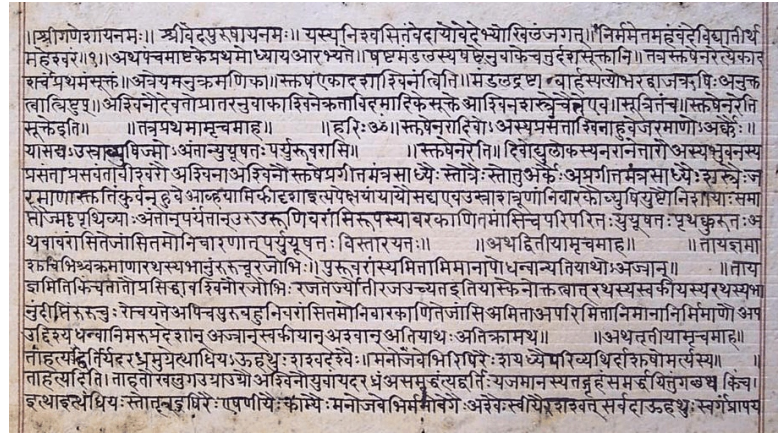 ॥श्रीगणेशायनमः॥ श्रीवेदपुरुषायनमः॥ यस्यनिश्वसितंवेदायोवेदेभ्योखिलंजगत्॥ निर्ममेतमहंवंदेविद्यातीर्थ
महेश्वरं॥१॥ अथपंचमाष्टकेप्रथमोध्यायआरभ्यते॥ षष्टमंडलस्यषष्टेनुवाकेचतुर्दशसूक्तानि॥ तत्रस्तुषेनरेत्येकाद
शर्चंप्रथमंसूक्तं॥ अत्रेयमनुक्रमणिका॥ स्तुषएकादशाश्विनंत्विति॥ मंडलद्रष्टा बार्हस्पत्योभरद्वाजऋषिः अनुक्त
त्वात्रिष्टुप्॥ अश्विनौदेवताप्रातरनुवाकाश्विनक्रताविदमादिकेसूक्ते आश्विनशस्त्रेचैतएव॥ सूत्रितंच॥ स्तुषेनरेति
सूक्तेइति॥ ॥तत्रप्रथमामृचमाह॥ ॥हरिःॐ॥ स्तुषेनरादिवोअस्यप्रसंताश्विनाहुवेजरमाणोअर्कैः॥
यासद्यउस्राव्युषिज्मोअंतान्युयूषतःपर्युरूवरांसि॥ ॥स्तुषेनरेति॥ दिवोद्युलोकस्यनरानेतारौअस्यभुवनस्य
प्रसंताप्रसवंतावीश्वरौअश्विनाअश्विनौस्तुषेप्रगीतमंत्रसाध्यैःस्तोत्रैःस्तौतुअर्कैःअप्रगीतमंत्रसाध्यैःशस्त्रैःज
रमाणःस्तुतिंकुर्वन्हुवेआव्हयामिकीदृशाइत्यपेक्षायांयायौसद्यएवउस्राशत्रूणांनिवारकौव्युषिव्युष्टौनिशायाःसमा
प्तौज्मःपृथिव्याःअंतान्पर्यंतान्उरुउरूणिवरांसिरूपस्यावरकाणितमांसिचपरिपरितःयुयूषतःपृथक्कुरुतःअ
थवावरांसितेजांसितमोनिवारणात्पर्युयूषतःविस्तारयतः॥ ॥अथद्वितीयामृचमाह॥ ॥तायज्ञमा
शुचिभिश्चक्रमाणारथस्यभानुंरुरुचूरजोभिः॥ पुरूवरांस्यमितामिमानापोधन्वान्यतियाथोअज्रान्॥ ॥ताय
ज्ञमितिकिंचतातौप्रसिद्धावश्विनौरजोभिःरजतेर्ज्योतीरजउच्यतइतियास्केनोक्तत्वात्रथस्यस्वकीयस्यरथस्यभा
नुंदीप्तिंरुरुचुःरोचयतेअपिचपुरूबहुनिवरांसितमोनिवारकाणितेजांसिअमिताअपरिमितानिमानानिर्मिमाणौअप
उद्दिश्यधन्वानिमरुप्रदेशान्अज्रान्स्वकीयान्अश्वान्अतियाथःअतिक्रामथ॥ ॥अथतृतीयामृचमाह॥
ताहत्यद्वर्तिर्यदरध्रमुग्रेत्थाधियऊहथुःशश्वदश्वैः॥ मनोजवेभिरिषिरैःशयध्यैपरिव्यथिर्दाशुषोमर्त्यस्य॥ ॥
ताहत्यदिति। ताहतौखलुउग्राउग्रौअश्विनौयुवांयदरध्रंअसमृद्धंत्यद्वर्तिःयजमानस्यतद्गृहंसमर्द्धयितुंगच्छथकिंच।
इत्थाइत्थंधियःस्तोतॄन्इषिरैःएषणीयैःकाम्यैःमनोजवेभिर्मनोवेगैःअश्वैःस्वीयैःशश्वत्सर्वदाऊहथुःस्वर्गंप्रापय